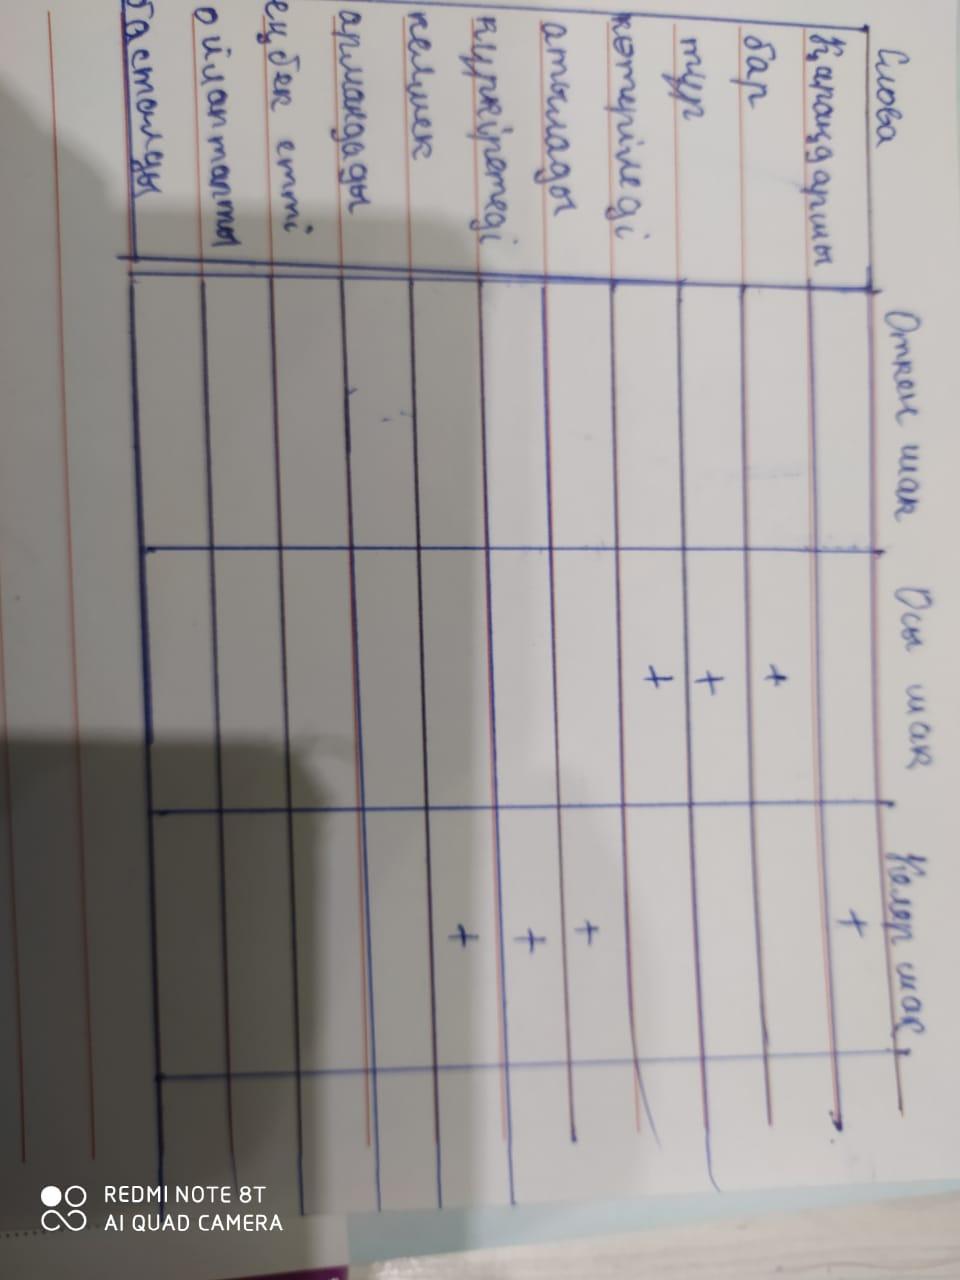 Слова Откен шак Осы шак Келер шақ
Қараңдаршы +
бар +
тұр +
көтеріледі +
атылады +
күркіретеді +
келмек +
армандады
еңбек етті
ойлапты
басталды
REDMI NOTE 8T
AI QUAD CAMERA